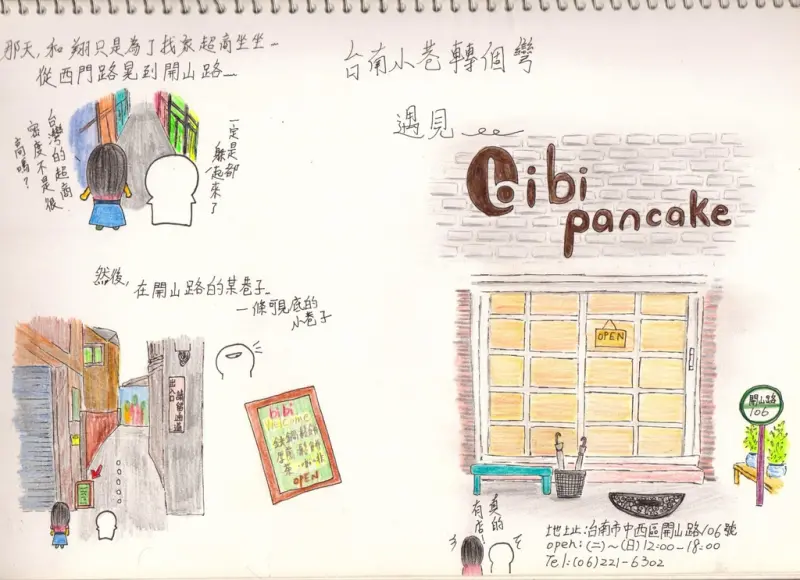 那天,和翔只是為了找家超商坐坐..
從西門路晃到開山路...
台灣的超商
密度不是很
高嗎?
一定是都
躲起來了
然後,
在開山路的某巷子..
一條可見底的
小巷子
出入口
請留通道
bibi
Welcome
OPEN
台南小巷轉個彎
遇見
bibi
pancake
OPEN
開山路
106
真的
有店!
地址:台南市中西區開山路106號
open:(二)~(日)12:00-18:00
Tel:(06)221-6302